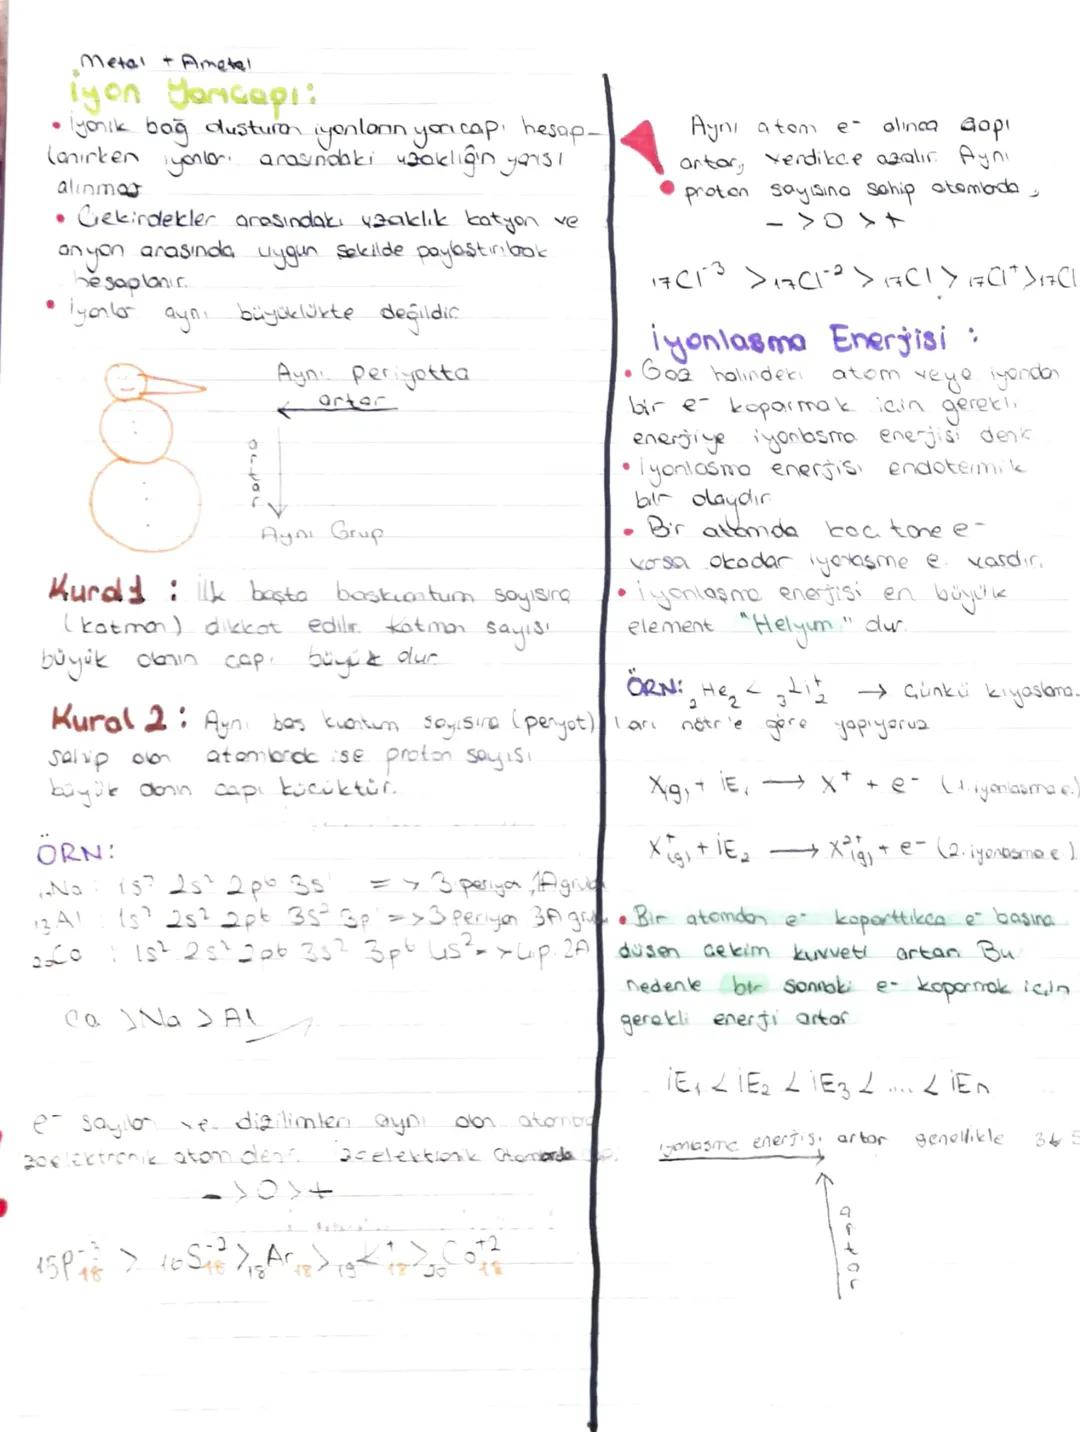 Metal + Ametal
İyon Yarıçapı:
• İyonik bağ oluşturan iyonların yarıçapı hesap-
lanırken iyonlar arasındaki uzaklığın yarısı
alınmaz
• Çekirdekler arasındaki uzaklık katyon ve
anyon arasında uygun şekilde paylaştırılarak
hesaplanır.
• İyonlar aynı büyüklükte değildir.
Aynı periyotta
artar
artar
Aynı Grup
Kural 1 : İlk başta baskuantum sayısına
(katman) dikkat edilir. Katman sayısı
büyük olanın çapı büyük olur
Kural 2 : Aynı baş kuantum sayısına (peryot)
sahip olan atomlarda ise proton sayısı
büyük olanın çapı küçüktür.
ÖRN:
11Na : 1s² 2s² 2p6 3s¹ => 3.periyon 1A grubu
13Al : 1s² 2s² 2p6 3s² 3p¹ => 3 periyon 3A grubu
20Ca : 1s² 2s² 2p6 3s² 3p6 4s² => 4.p. 2A
Ca > Na > Al
e- sayıları ve dizilimleri aynı olan atomlara
izoelektronik atom denir. izoelektronik atomlarda
- > 0 > +
15P-3 18 > 16S-2 18 > 18Ar 18 > 19K+ 18 > 20Ca+2 18
Aynı atom e- alınca çapı
artar, verdikçe azalır. Aynı
proton sayısına sahip atomlarda,
- > 0 > +
17Cl-3 > 17Cl-2 > 17Cl > 17Cl+ > 17Cl
İyonlaşma Enerjisi :
• Gaz halindeki atom veya iyondan
bir e- koparmak için gerekli
enerjiye iyonlaşma enerjisi denir
• İyonlaşma enerjisi endotermik
bir olaydır
• Bir atomda kaç tane e-
varsa okadar iyonlaşma e. vardır.
• İyonlaşma enerjisi en büyük
element "Helyum" dur.
ÖRN: 2He2 < 3Li+2 → Çünkü kıyaslama-
ları nötr'e göre yapıyoruz
X(g) + İE1 → X+ + e- (1.iyonlaşma e.)
X+(g) + İE2 → X2+(g) + e- (2.iyonlaşma e.)
• Bir atomdan e- koparttıkça e- başına
düşen çekim kuvveti artar. Bu
nedenle bir sonraki e- koparmak için
gerekli enerji artar
İE1 < İE2 < İE3 < .... < İEn
iyonlaşma enerjisi artar genellikle
artar